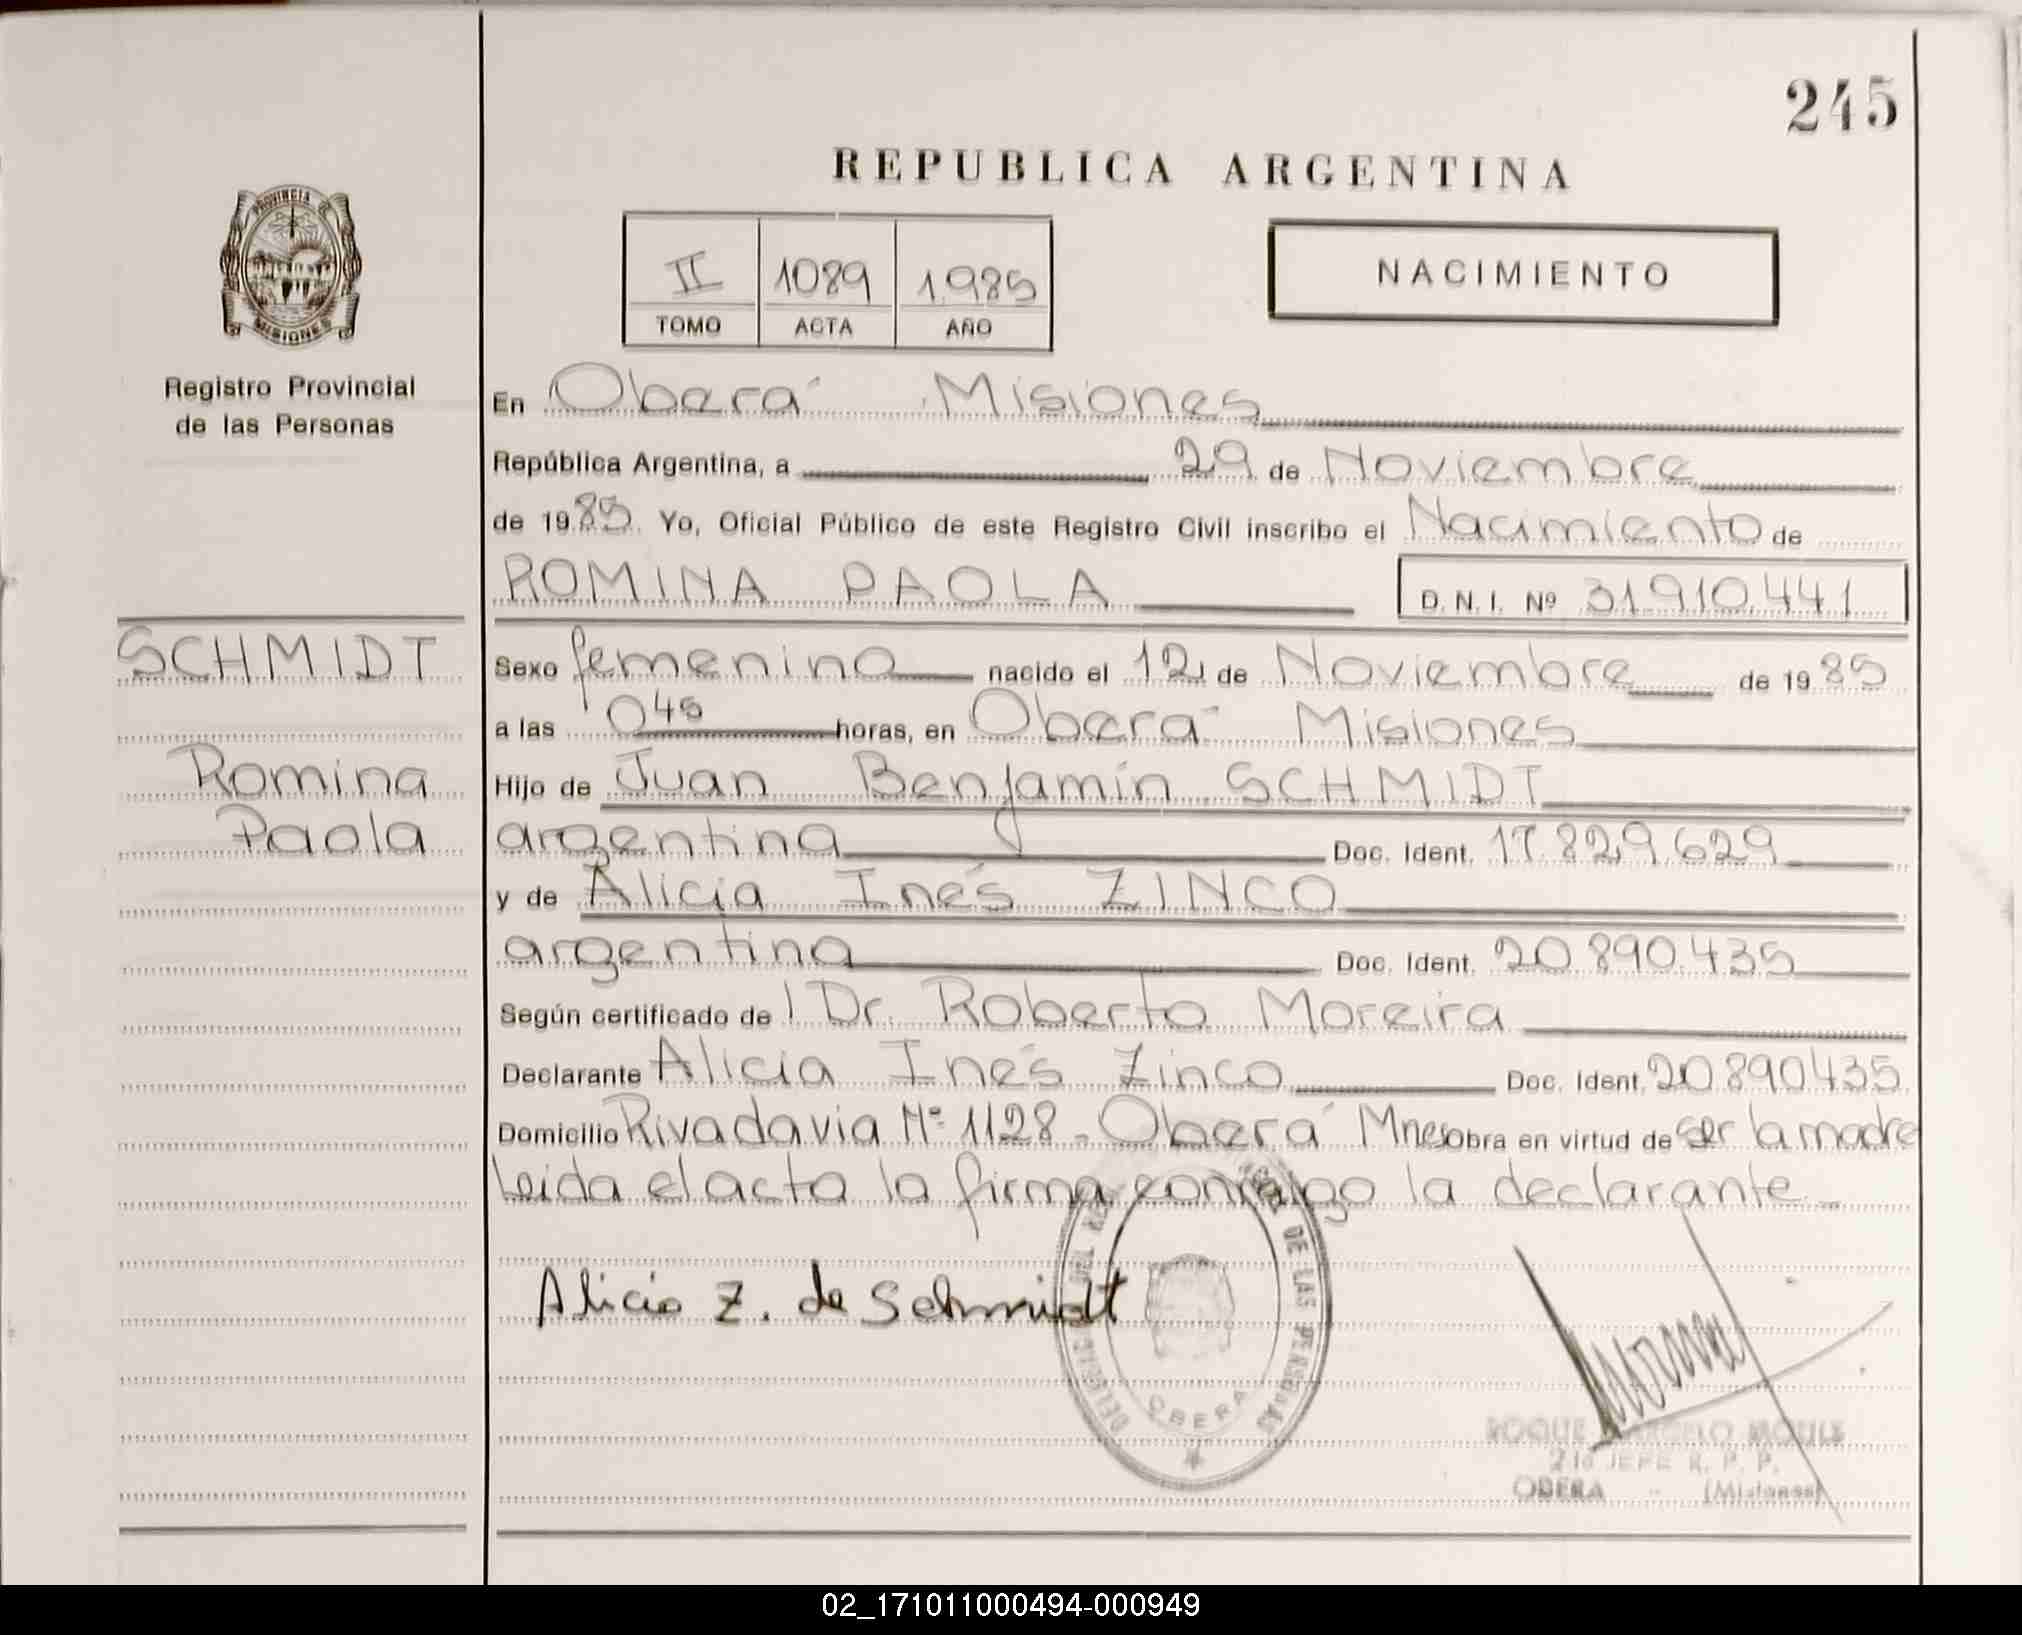 245
REPUBLICA ARGENTINA
PROVINCIA DE
MISIONES
Registro Provincial
de las Personas
II 1089 1.985
TOMO ACTA AÑO
NACIMIENTO
En Oberá Misiones
República Argentina, a 29 de Noviembre
de 1985. Yo, Oficial Público de este Registro Civil inscribo el Nacimiento de
ROMINA PAOLA D.N.I. Nº 31.910.441
SCHMIDT
Romina
Paola
Sexo femenino nacido el 12 de Noviembre de 1985
a las 0 45 horas, en Oberá Misiones
Hijo de Juan Benjamín SCHMIDT
argentina Doc. Ident. 17.829.629
y de Alicia Inés ZINCO
argentina Doc. Ident. 20.890.435
Según certificado de Dr. Roberto Moreira
Declarante Alicia Inés Zinco Doc. Ident. 20.890.435
Domicilio Rivadavia Nº 1128 - Oberá Mnes obra en virtud de ser la madre
Leida el acta la firma conmigo la declarante -
Alicia Z. de Schmidt
DE LAS PERSONAS
OBERA
ROQUE
2do JEFE R. P. P.
OBERA - (Misiones)
02_171011000494-000949